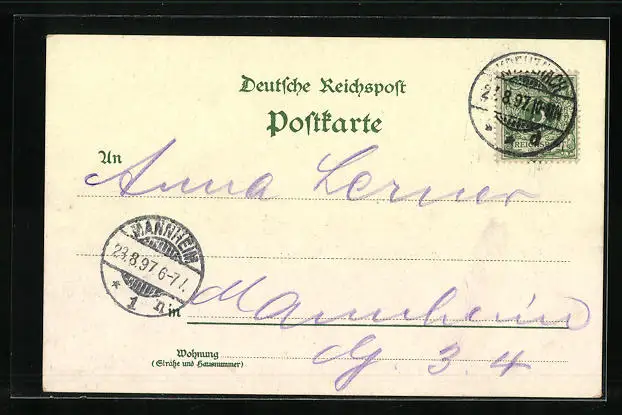 Deutsche Reichspost
Postkarte
23.8.97.
REICHSPOST
An Anna Lerner
MANNHEIM
23.8.97.6-7
* 1 n
in Mannheim
Wohnung
(Straße und Hausnummer)
G. 3. 4